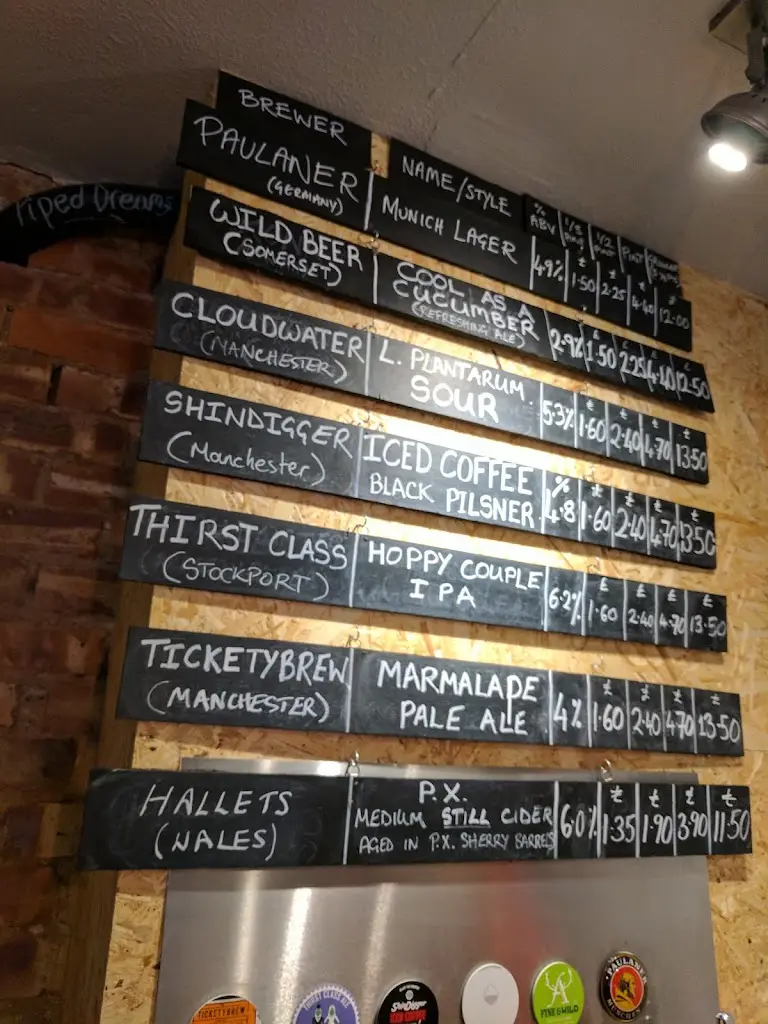 Piped Dreams
BREWER NAME/STYLE % ABV 1/3 PINT 1/2 PINT PINT
PAULANER (GERMANY) MUNICH LAGER 4.9% £1.50 £2.25 £4.40 £12.00
WILD BEER (SOMERSET) COOL AS A CUCUMBER (REFRESHING ALE) 2.9% £1.50 £2.25 £4.40 £12.50
CLOUDWATER (MANCHESTER) L. PLANTARUM. SOUR 5.3% £1.60 £2.40 £4.70 £13.50
SHINDIGGER (Manchester) ICED COFFEE BLACK PILSNER 4.8% £1.60 £2.40 £4.70 £13.50
THIRST CLASS (STOCKPORT) HOPPY COUPLE IPA 6.2% £1.60 £2.40 £4.70 £13.50
TICKETYBREW (MANCHESTER) MARMALADE PALE ALE 4% £1.60 £2.40 £4.70 £13.50
HALLETS (WALES) P.X. MEDIUM STILL CIDER AGED IN P.X. SHERRY BARRELS 6.0% £1.35 £1.90 £3.90 £11.50
TICKETYBREW
THIRST CLASS ALE
ShinDigger
ICED COFFEE
FINE & WILD
PAULANER
MÜNCHEN